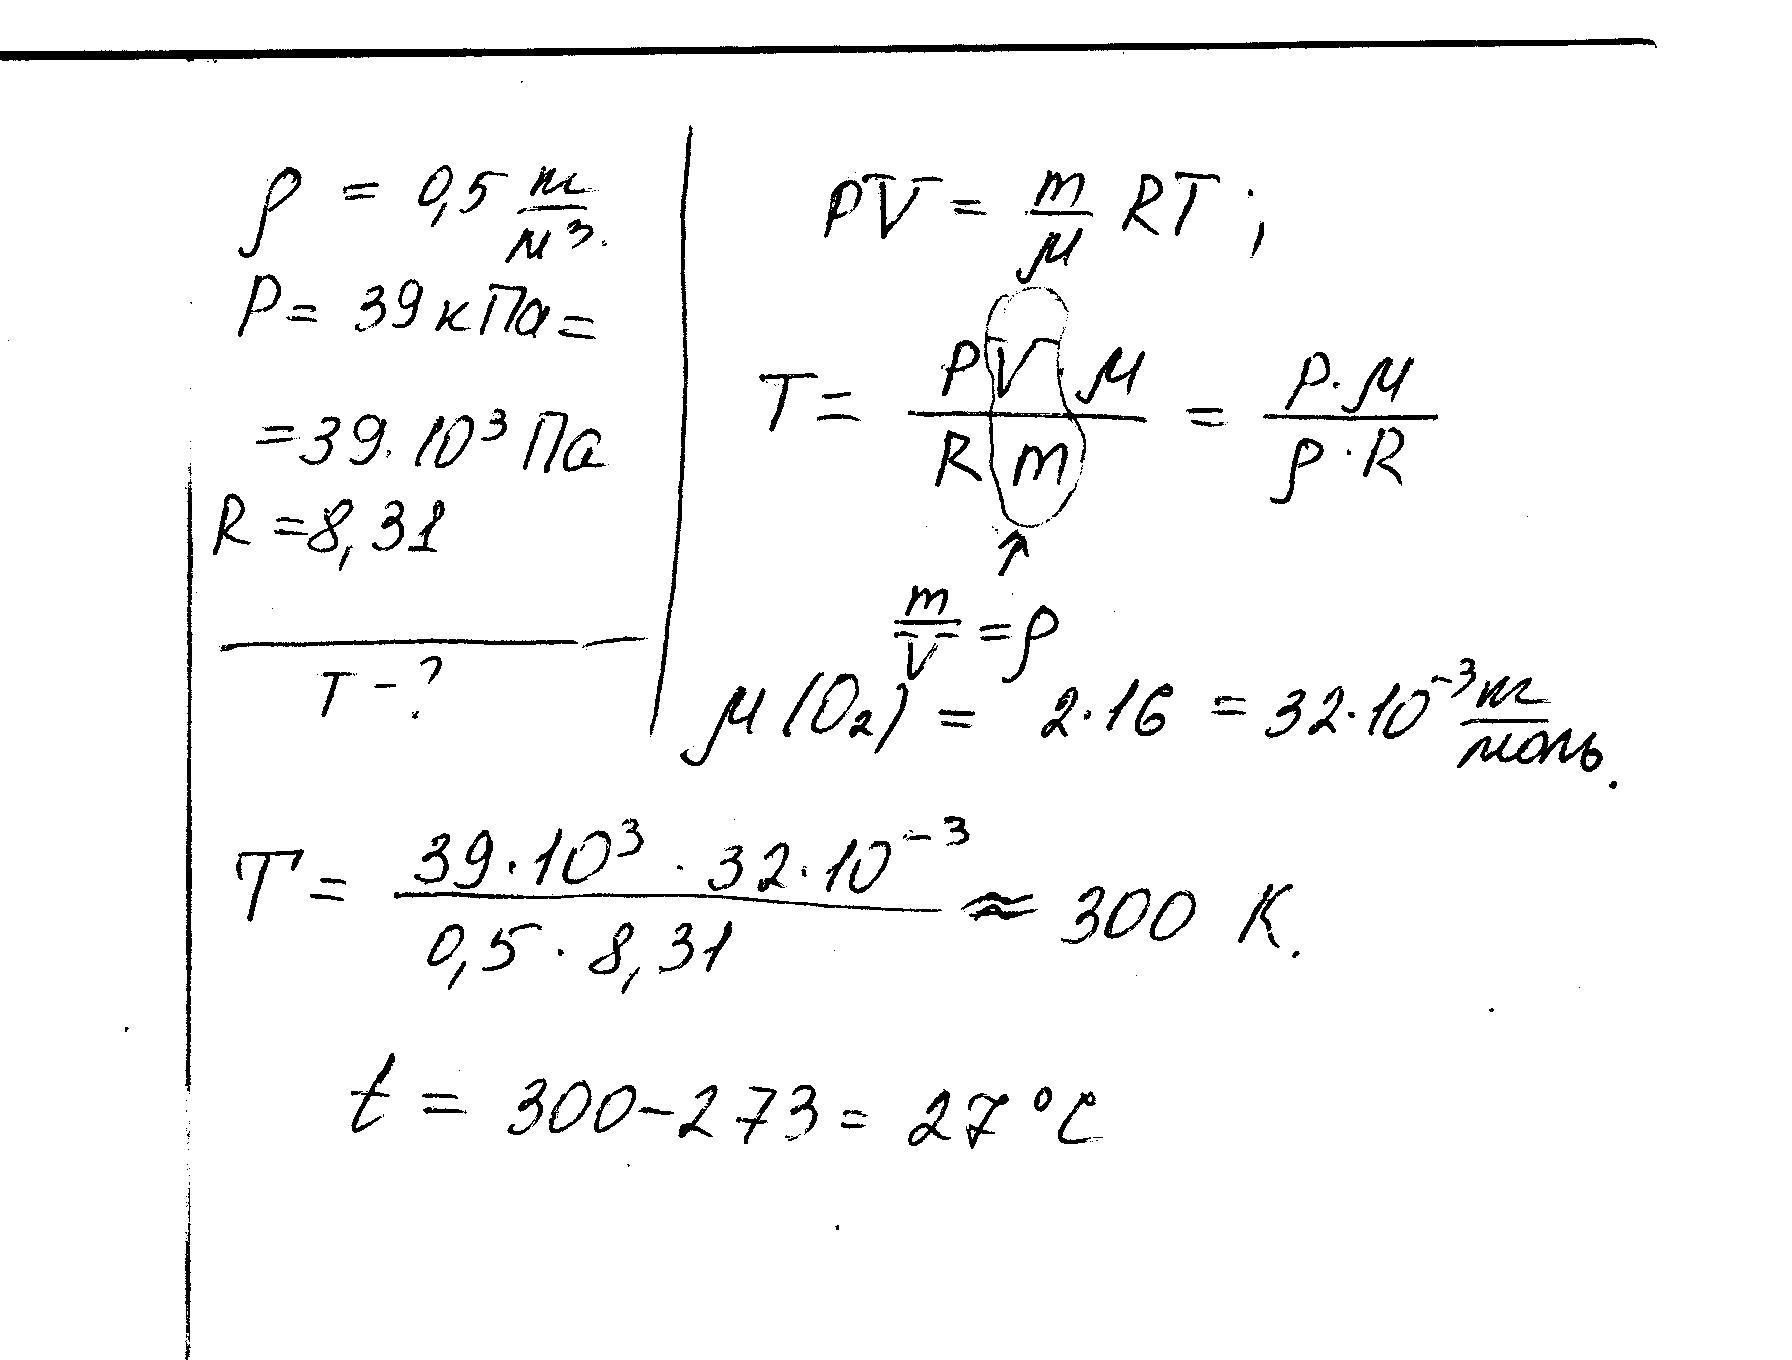 ρ = 0,5 кг/м³.
P = 39 кПа =
= 39·10³ Па
R = 8,31
T - ?
PV = m/μ RT ;
T = PVμ/Rm = P·μ/ρ·R
m/V = ρ
μ(O₂) = 2·16 = 32·10⁻³ кг/моль.
T = 39·10³ · 32·10⁻³/0,5 · 8,31 ≈ 300 K.
t = 300 - 273 = 27 °C